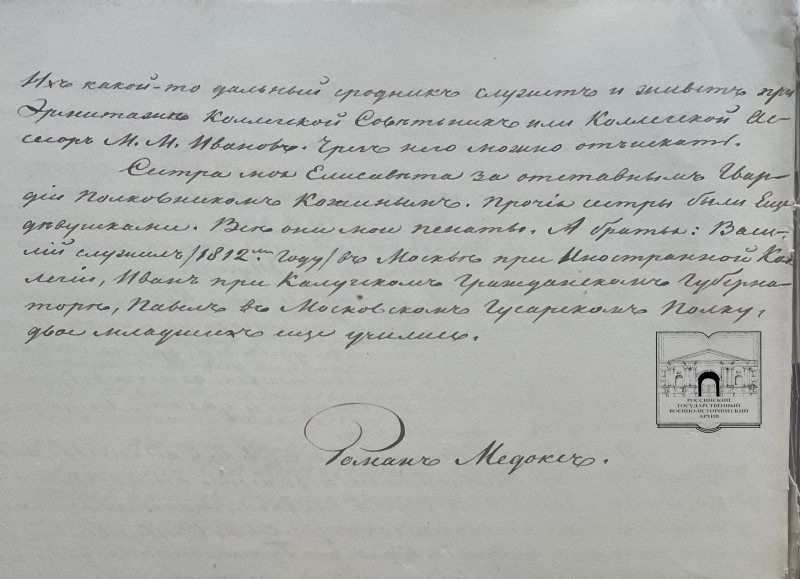 Ихъ какой-то дальный сродникъ служитъ и живетъ при
Эрмитажѣ Коллегской Совѣтникъ или Коллегской Ас-
сесоръ М. М. Ивановъ. Чрезъ него можно отъискать.
Сестра моя Елисавета за отставнымъ Гвар-
діи Полковникомъ Кожинымъ. Прочія сестры были еще
дѣвушками. Всѣ они мои пенаты. А братья: Васи-
лій служилъ /1812мъ году/ въ Москвѣ при Иностранной Кол-
легіи, Иванъ при Калужскомъ Гражданскомъ Губерна-
торѣ, Павелъ въ Московскомъ Гусарскомъ Полку,
двое младшихъ еще учились.
Романъ Медоксъ.
РОССИЙСКИЙ
ГОСУДАРСТВЕННЫЙ
ВОЕННО-ИСТОРИЧЕСКИЙ
АРХИВ